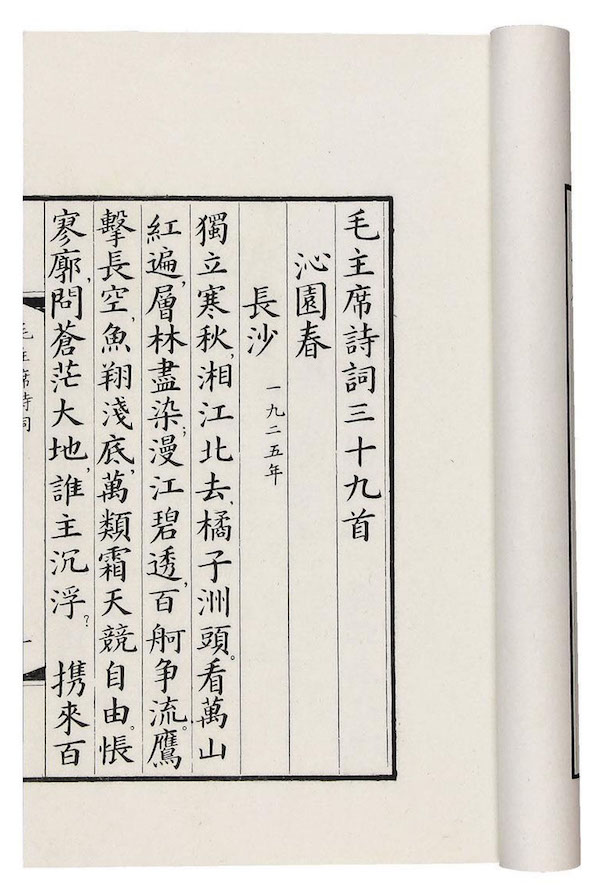 毛主席詩詞三十九首
沁園春
長沙 一九二五年
獨立寒秋，湘江北去，橘子洲頭。看萬山
紅遍，層林盡染；漫江碧透，百舸争流。鷹
擊長空，魚翔淺底，萬類霜天競自由。悵
寥廓，問蒼茫大地，誰主沉浮？ 携來百
毛主席詩詞
一